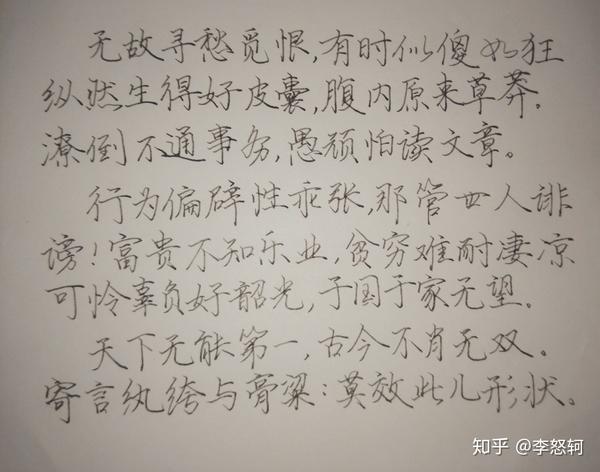 无故寻愁觅恨,有时似傻如狂
纵然生得好皮囊,腹内原来草莽.
潦倒不通事务,愚顽怕读文章。
行为偏僻性乖张,那管世人诽
谤!富贵不知乐业,贫穷难耐凄凉
可怜辜负好韶光,于国于家无望.
天下无能第一,古今不肖无双。
寄言纨绔与膏粱:莫效此儿形状。
知乎 @李怒轲